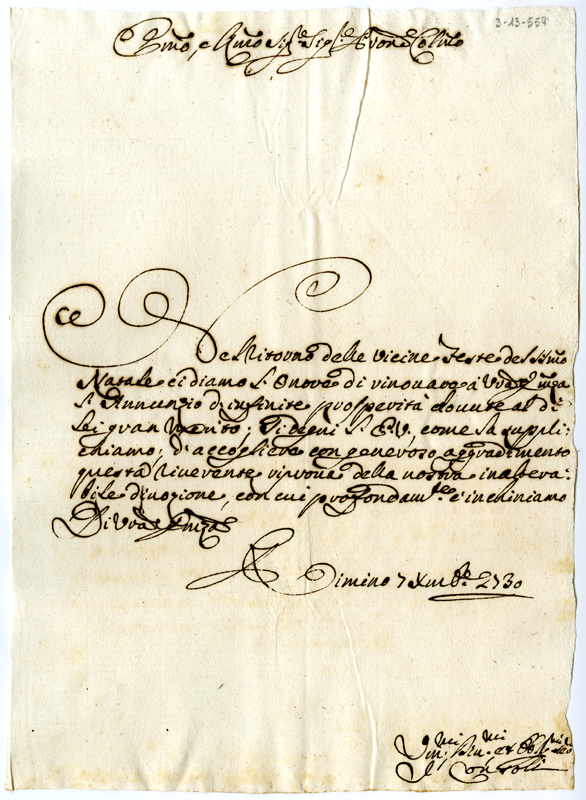 3-13-557
Emo, e Rmo Sigre Sigre Prone Colmo
Nel Ritorno delle vicine Feste del SSmo
Natale ci diamo l'Onore di rinovare à Vra Emza
l'Annunzio d'infinite prosperità dovute al di
Lei gran Merito; Si degni l'E.V., come la suppli:
chiamo, d'accogliere con generoso aggradimento
questa riverente riprova della nostra inaltera:
bile divozione, con cui profondamte c'inchiniamo
Di Vra Emza
Dimino 7 Xmbre 1730
Ummi
Consoli